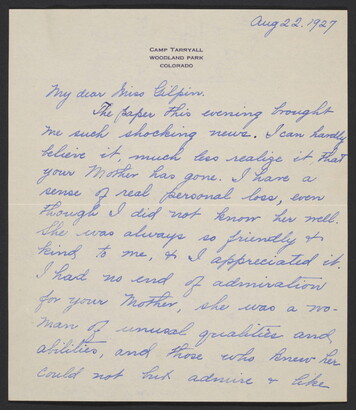 Aug 22. 1927
CAMP TARRYALL
WOODLAND PARK
COLORADO
My dear Miss Gilpin.
The paper this evening brought
me such shocking news. I can hardly
believe it, much less realize it that
your Mother has gone. I have a
sense of real personal loss, even
though I did not know her well.
She was always so friendly &
kind to me, & I appreciated it.
I had no end of admiration
for your Mother, she was a wo-
man of unusual qualities and
abilities, and those who knew her
could not but admire & like